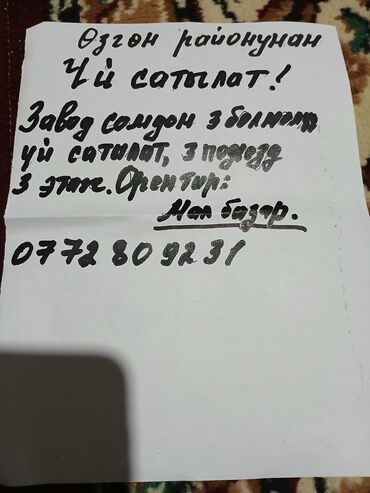 Өзгөн районунан
Үй сатылат!
Завод самдон 3 болмолу
үй саталат, 3 подьезд
3 этаж. Орентир:
Мал базар.
0772 80 92 31